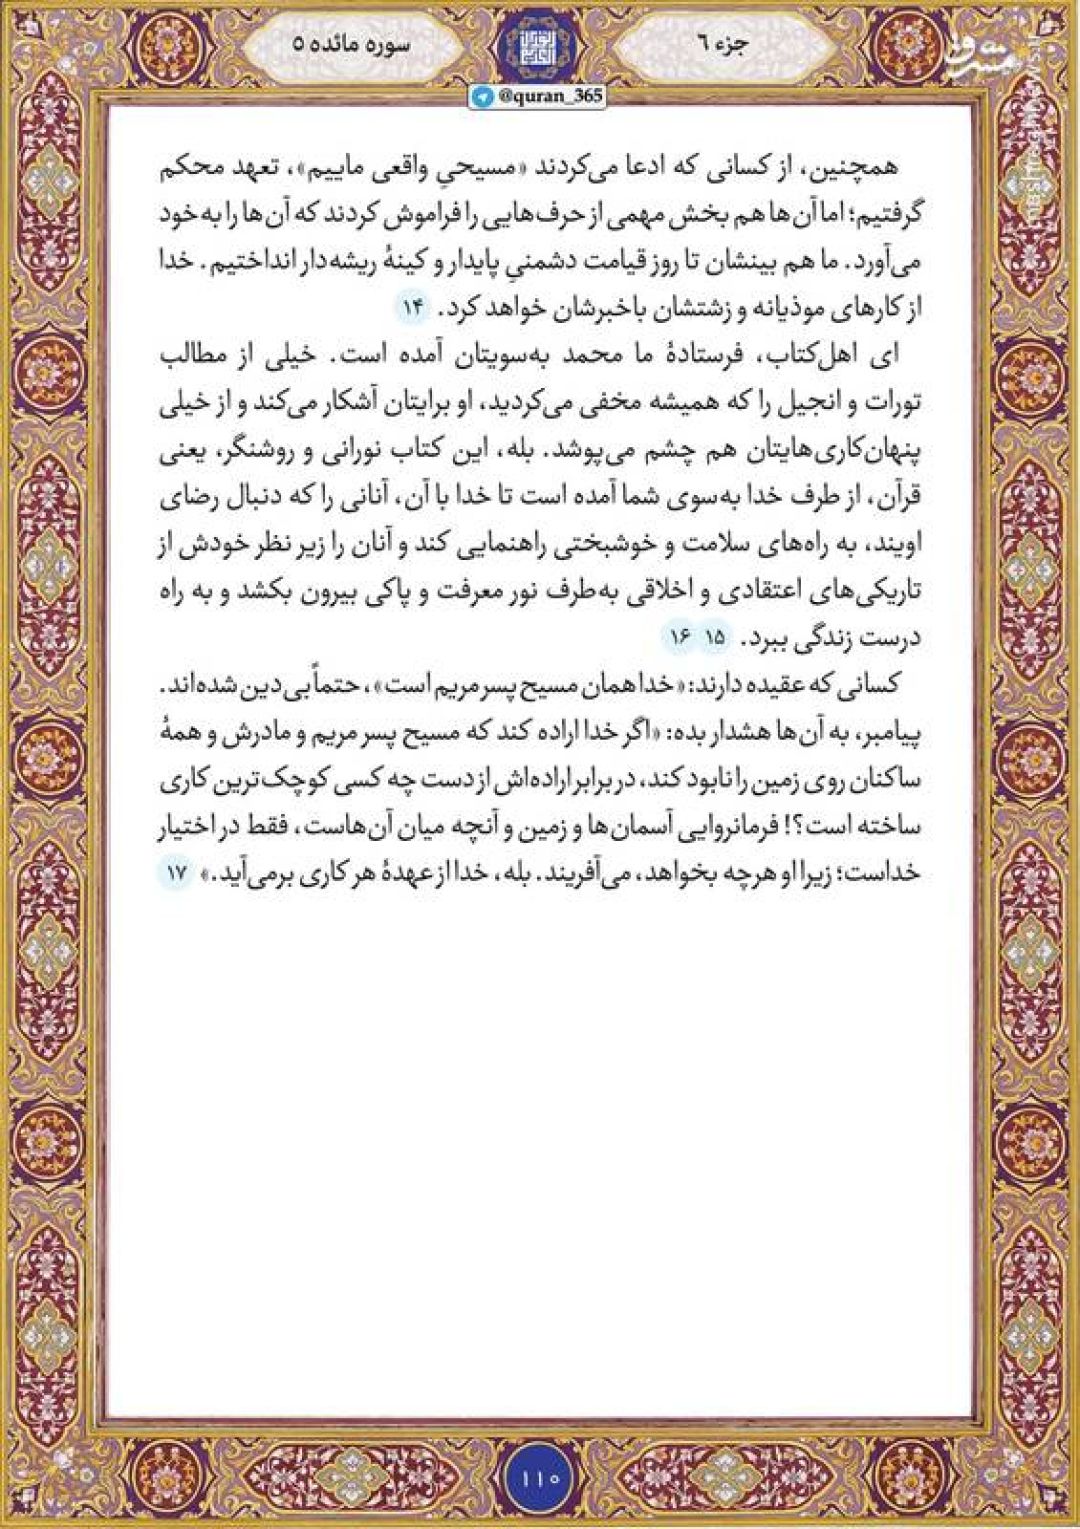 جزء ۶
سوره مائده ۵
مشرق
mashreghnews.ir
@quran_365
همچنین، از کسانی که ادعا می‌کردند «مسیحیِ واقعی ماییم»، تعهد محکم
گرفتیم؛ اما آن‌ها هم بخش مهمی از حرف‌هایی را فراموش کردند که آن‌ها را به‌خود
می‌آورد. ما هم بینشان تا روز قیامت دشمنیِ پایدار و کینهٔ ریشه‌دار انداختیم. خدا
از کارهای موذیانه و زشتشان باخبرشان خواهد کرد. ۱۴
ای اهل‌کتاب، فرستادهٔ ما محمد به‌سویتان آمده است. خیلی از مطالب
تورات و انجیل را که همیشه مخفی می‌کردید، او برایتان آشکار می‌کند و از خیلی
پنهان‌کاری‌هایتان هم چشم می‌پوشد. بله، این کتاب نورانی و روشنگر، یعنی
قرآن، از طرف خدا به‌سوی شما آمده است تا خدا با آن، آنانی را که دنبال رضای
اویند، به راه‌های سلامت و خوشبختی راهنمایی کند و آنان را زیر نظر خودش از
تاریکی‌های اعتقادی و اخلاقی به‌طرف نور معرفت و پاکی بیرون بکشد و به راه
درست زندگی ببرد. ۱۵ ۱۶
کسانی که عقیده دارند: «خدا همان مسیح پسر مریم است»، حتماً بی‌دین شده‌اند.
پیامبر، به آن‌ها هشدار بده: «اگر خدا اراده کند که مسیح پسر مریم و مادرش و همهٔ
ساکنان روی زمین را نابود کند، در برابر اراده‌اش از دست چه کسی کوچک‌ترین کاری
ساخته است؟! فرمانروایی آسمان‌ها و زمین و آنچه میان آن‌هاست، فقط در اختیار
خداست؛ زیرا او هرچه بخواهد، می‌آفریند. بله، خدا از عهدهٔ هر کاری برمی‌آید.» ۱۷
۱۱۰